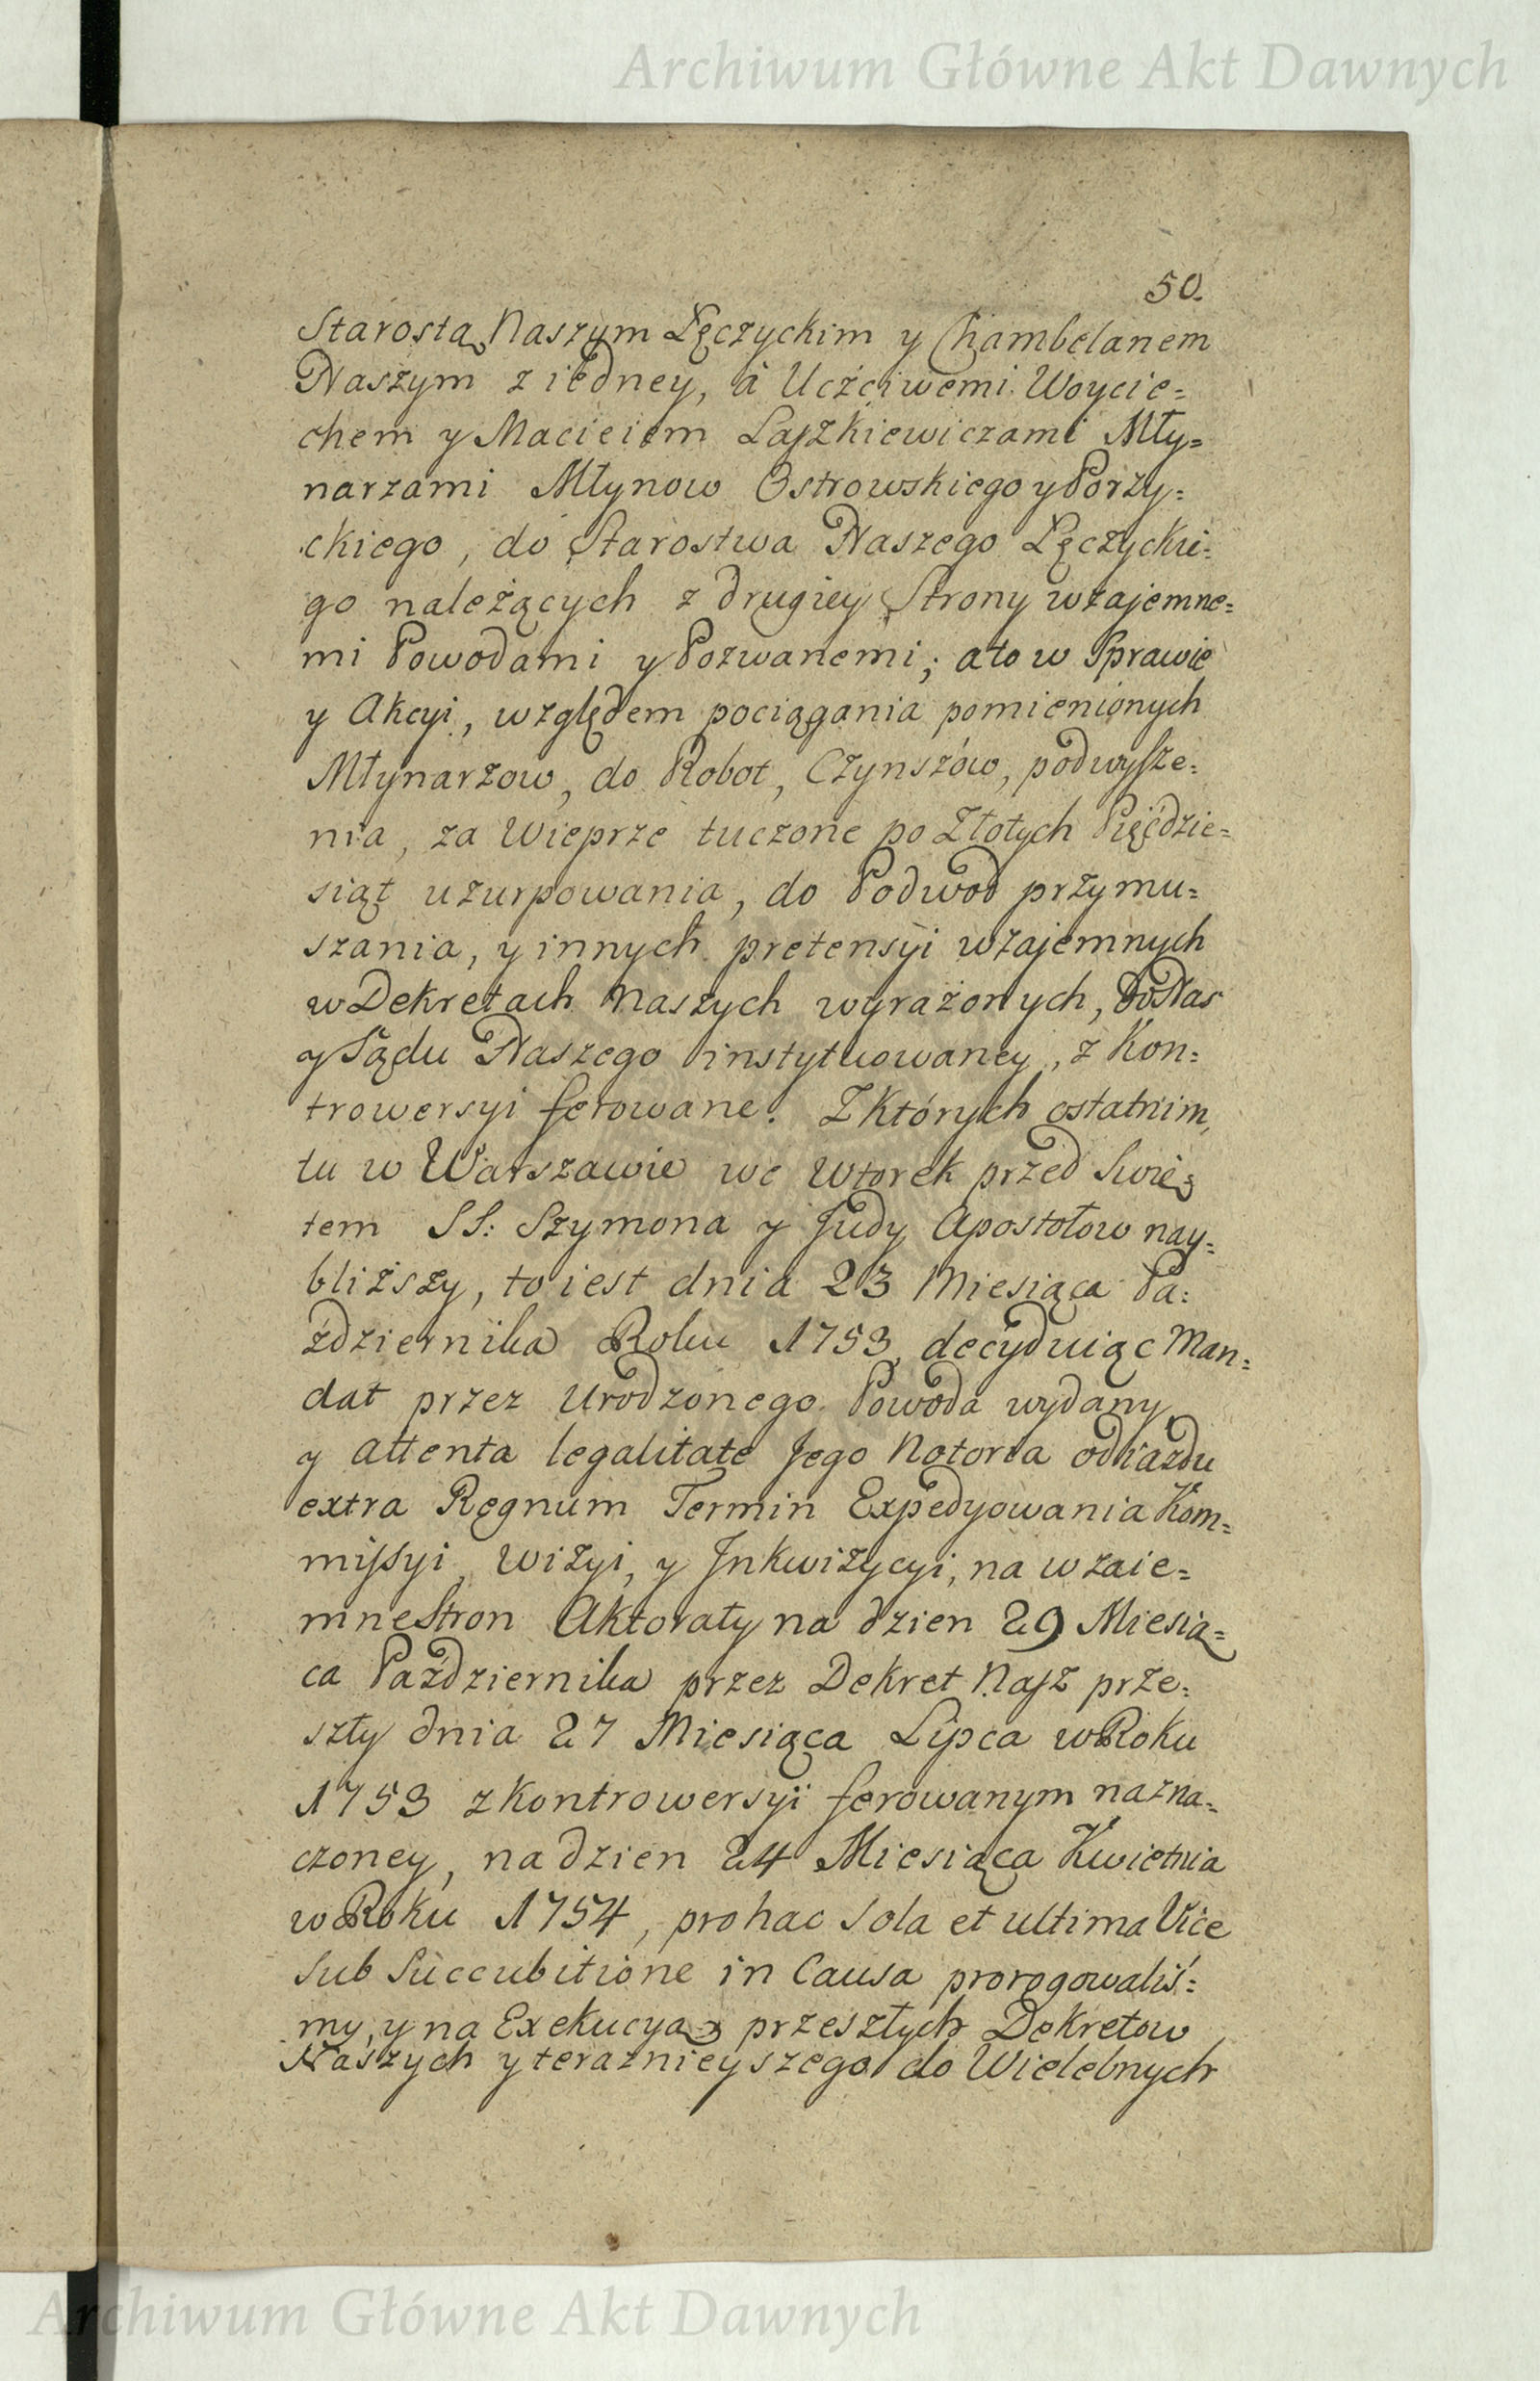 Archiwum Główne Akt Dawnych
50.
Starostą Naszym Łęczyckim y Chambelanem
Naszym z iedney, à Uczciwemi Woycie=
chem y Macieiem Laszkiewiczami Mły=
narzami Młynow Ostrowskiego y Porzy=
ckiego, do Starostwa Naszego Łęczycki=
go należących z drugiey Strony wzajemne=
mi Powodami y Pozwanemi; a to w Sprawie
y Akcyi, względem pociągania pomienionych
Młynarzow, do Robot, Czynszów, podwysze=
nia, za Wieprze tuczone po Złotych Pięćdzie=
siąt uzurpowania, do Podwod przymu=
szania, y innych pretensyi wzajemnych
w Dekretach Naszych wyrażonych, Do Nas
y Sądu Naszego instytuowaney, z Kon=
trowersyi ferowane. Z Których ostatnim,
tu w Warszawie we Wtorek przed Swię=
tem SS: Szymona y Judy Apostołow nay=
bliższy, to iest dnia 23 Miesiąca Pa=
ździernika Roku 1753, decyduiąc Man=
dat przez Urodzonego Powoda wydany,
y attenta legalitate Jego Notoria odiazdu
extra Regnum Termin Expedyowania Kom=
missyi, Wizyi, y Jnkwizycyi, na wzaie=
mne Stron Aktoraty na dzien 29 Miesią=
ca Października przez Dekret Nasz prze=
szły dnia 27 Miesiąca Lipca w Roku
1753 z Kontrowersyi ferowanym nazna=
czoney, na dzien 24 Miesiąca Kwietnia
w Roku 1754, pro hac sola et ultima Vice
sub Succubitione in Causa prorogowaliś=
my, y na Exekucyą przeszłych Dekretow
Naszych y teraznieyszego do Wielebnych
Archiwum Główne Akt Dawnych